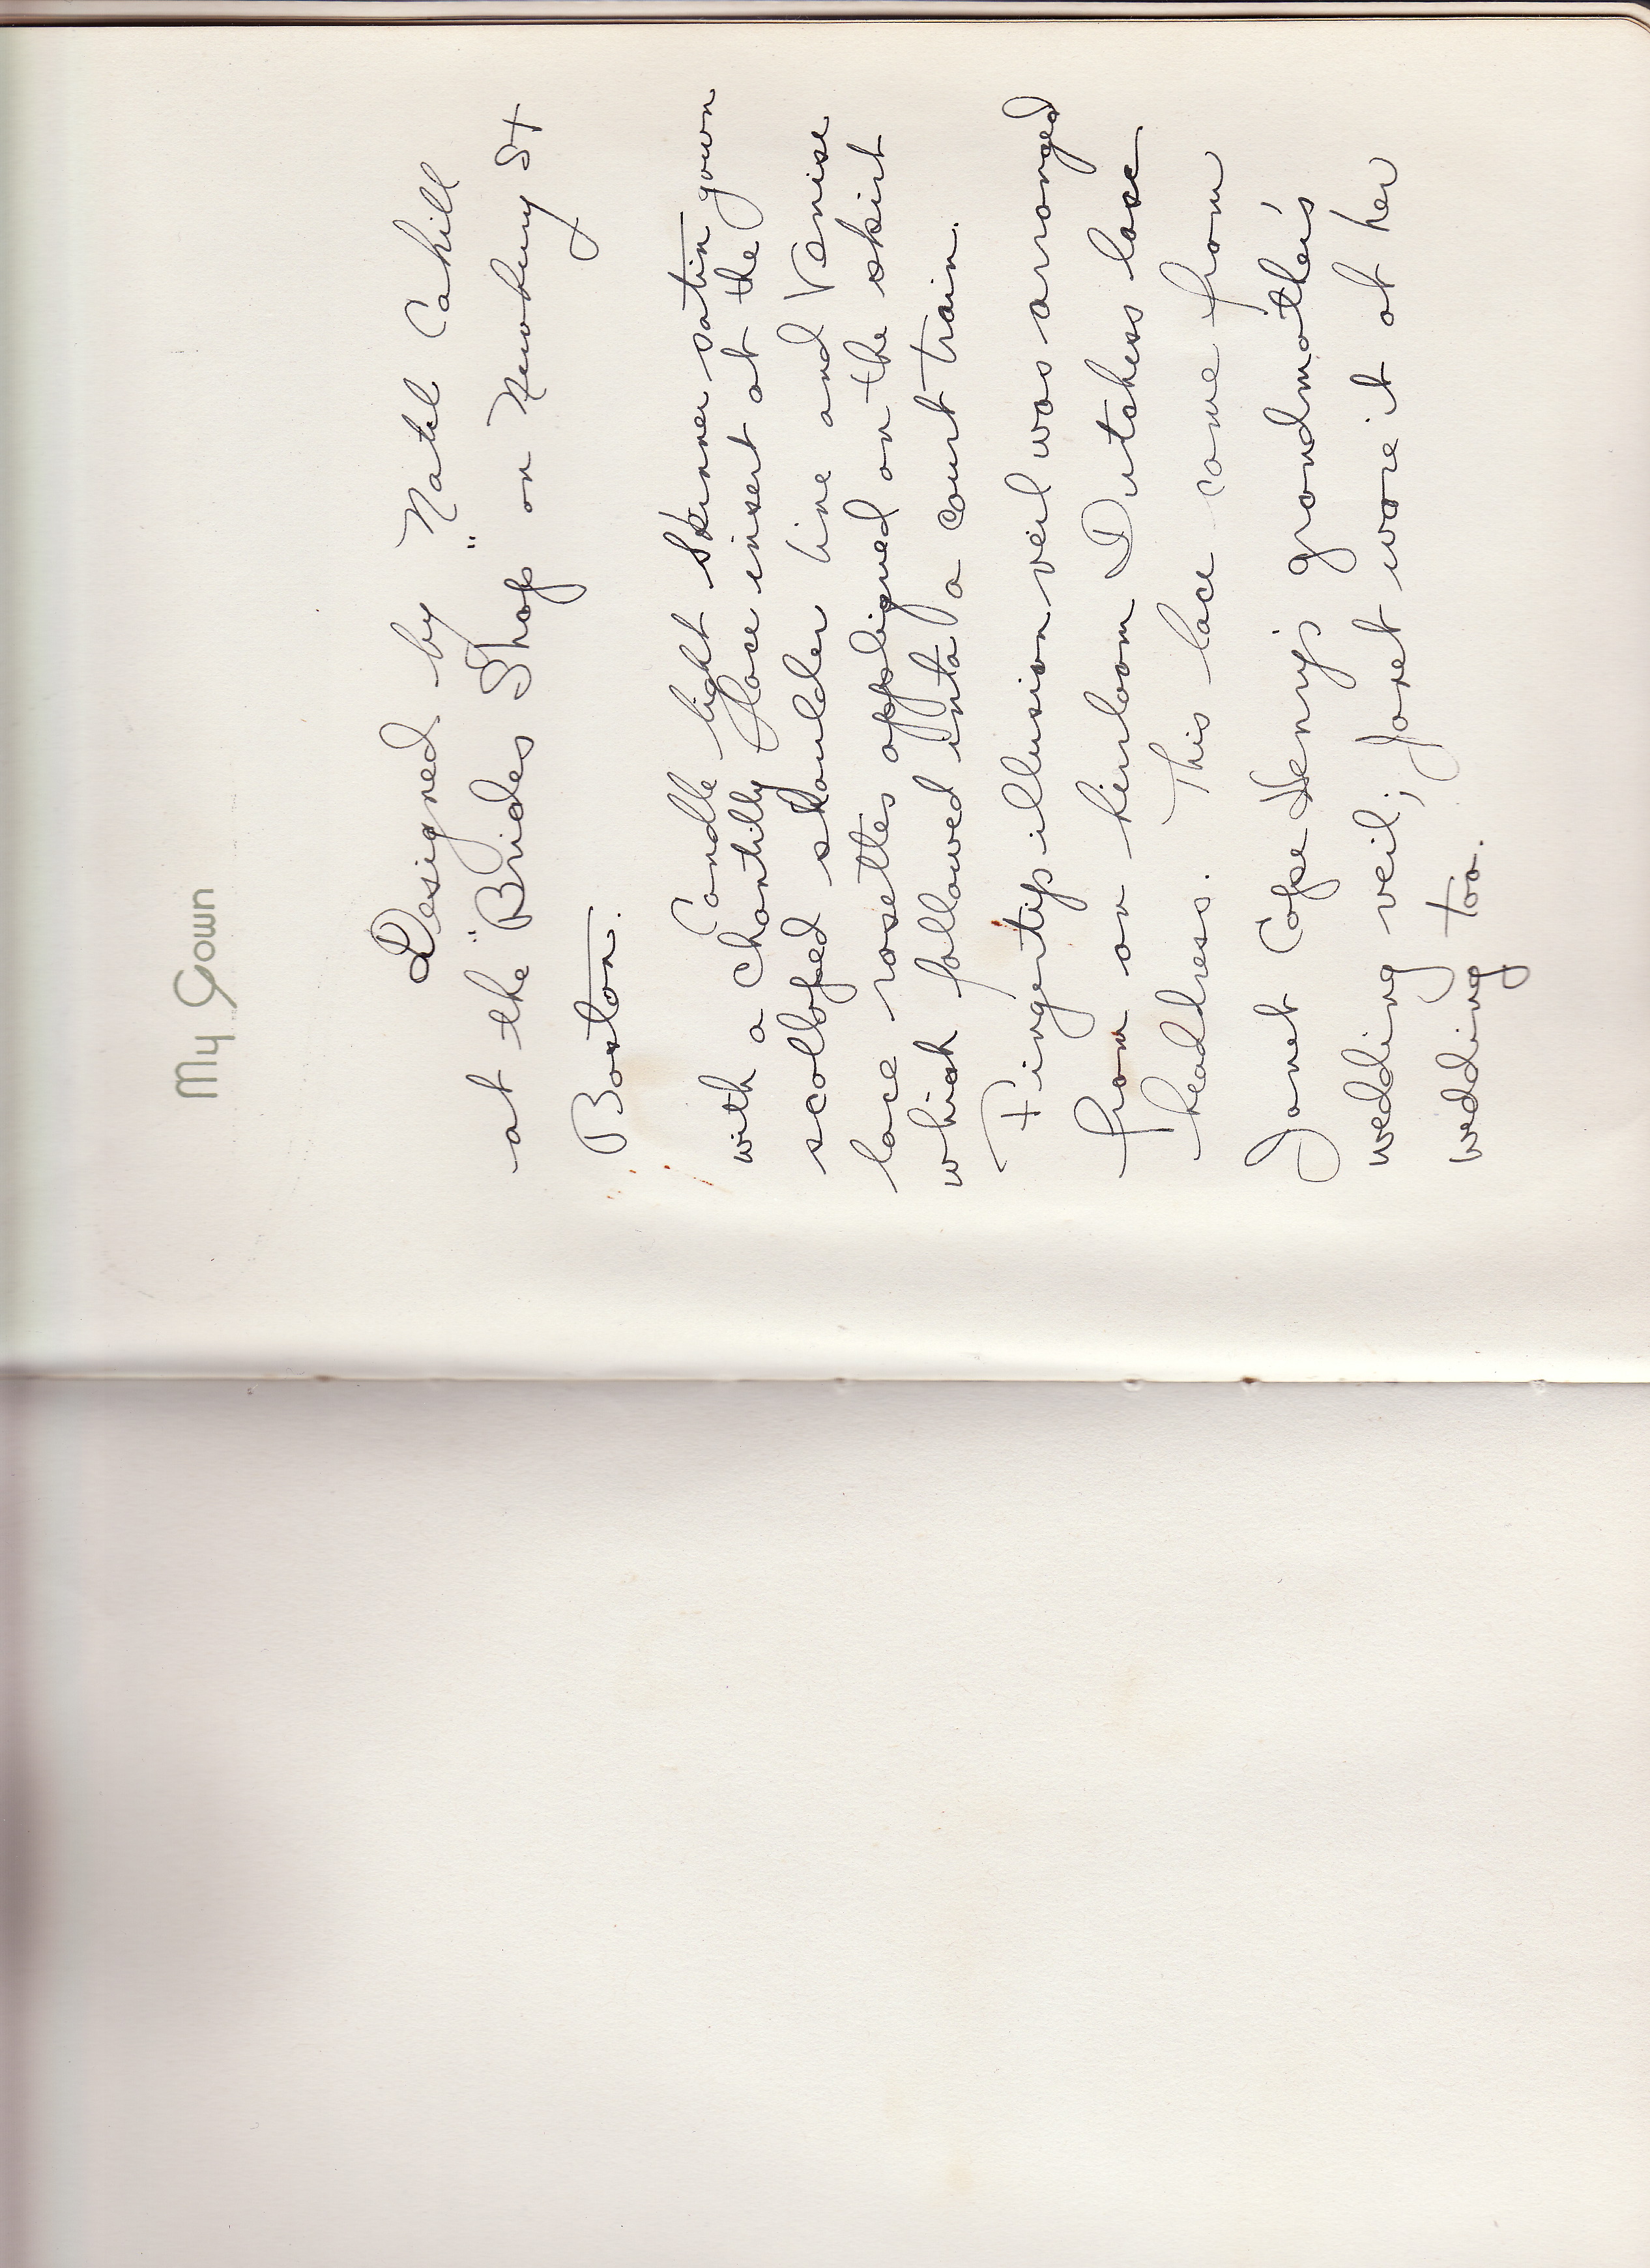 My Gown
Designed by Natel Cahill
at the "Brides Shop" on Newbury St
Boston.
Candle light Skinner satin gown
with a Chantilly lace insert at the
scolloped shoulder line and Venise
lace rosettes appliqued on the skirt
which followed into a court train.
Fingertip illusion veil was arranged
from an heirloom Dutchess lace
headdress. This lace came from
Janet Cope Henry's grandmother's
wedding veil; Janet wore it at her
wedding too.